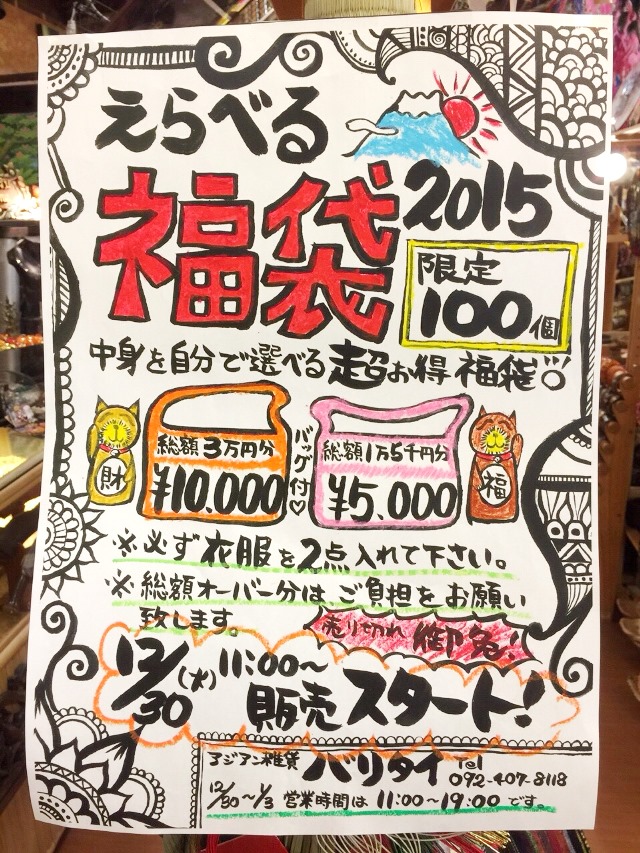 えらべる
福袋 2015
限定
100個
中身を自分で選べる 超お得 福袋!!
総額3万円分
¥10.000
バッグ付♡
総額1万5千円分
¥5.000
財
福
※必ず衣服を2点入れて下さい。
※総額オーバー分は、ご負担をお願い
致します。
売り切れ 御免!
12/30(火) 11:00〜
販売スタート!
アジアン雑貨 バリタイ Tel
092-407-8118
12/30〜1/3 営業時間は 11:00〜19:00 です。